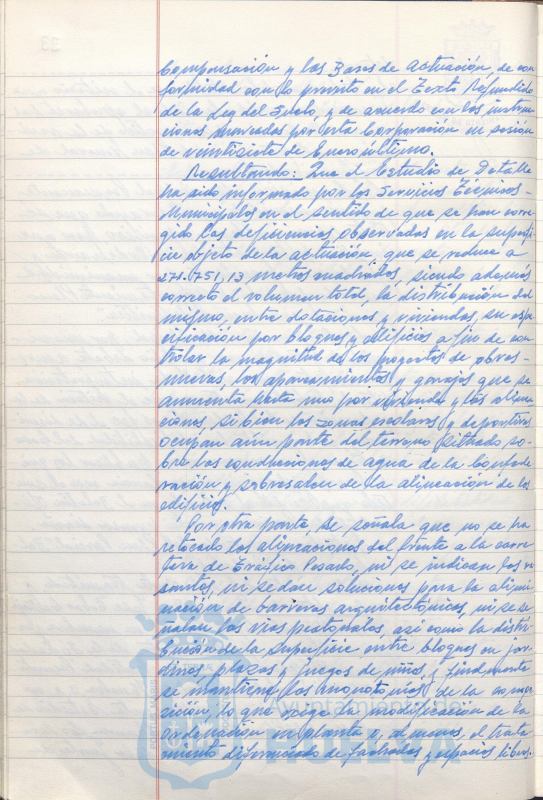 Compensación y las Bases de actuación, de con
formidad con lo previsto en el Texto Refundido
de la Ley del Suelo, y de acuerdo con las instruc
ciones marcadas por esta Corporación en sesión
de veintisiete de Enero último.
Resultando: Que el Estudio de Detalle
ha sido informado por los Servicios Técnicos
Municipales en el sentido de que se han corre
gido las deficiencias observadas en la superfi
cie objeto de la actuación, que se reduce a
271.751,13 metros cuadrados, siendo además
correcto el volumen total, la distribución del
mismo, entre dotaciones y viviendas, su espe
cificación por bloques y edificios a fin de con
trolar la magnitud de los proyectos de obras
nuevas, los aparcamientos y garajes que se
aumenta hasta uno por vivienda y las alinea
ciones, si bien las zonas escolares y deportivas
ocupan aún parte del terreno situado so-
bre las conducciones de agua de la Confede
ración y sobresalen de la alineación de los
edificios.
Por otra parte, se señala que no se ha
retocado las alineaciones del frente a la carre
tera de Tráfico Pesado, ni se indican las ra
santes, ni se dan soluciones para la elimi
nación de barreras arquitectónicas, ni se se
ñalan las vías peatonales, así como la distri
bución de la superficie entre bloques en jar
dines, plazas y juegos de niños, y finalmente
se mantiene las monotonías de la
lo que exige la modificación de la
ordenación en planta o, al menos, el trata
miento diferenciado de fachadas y espacios libres.
Ayuntamiento de